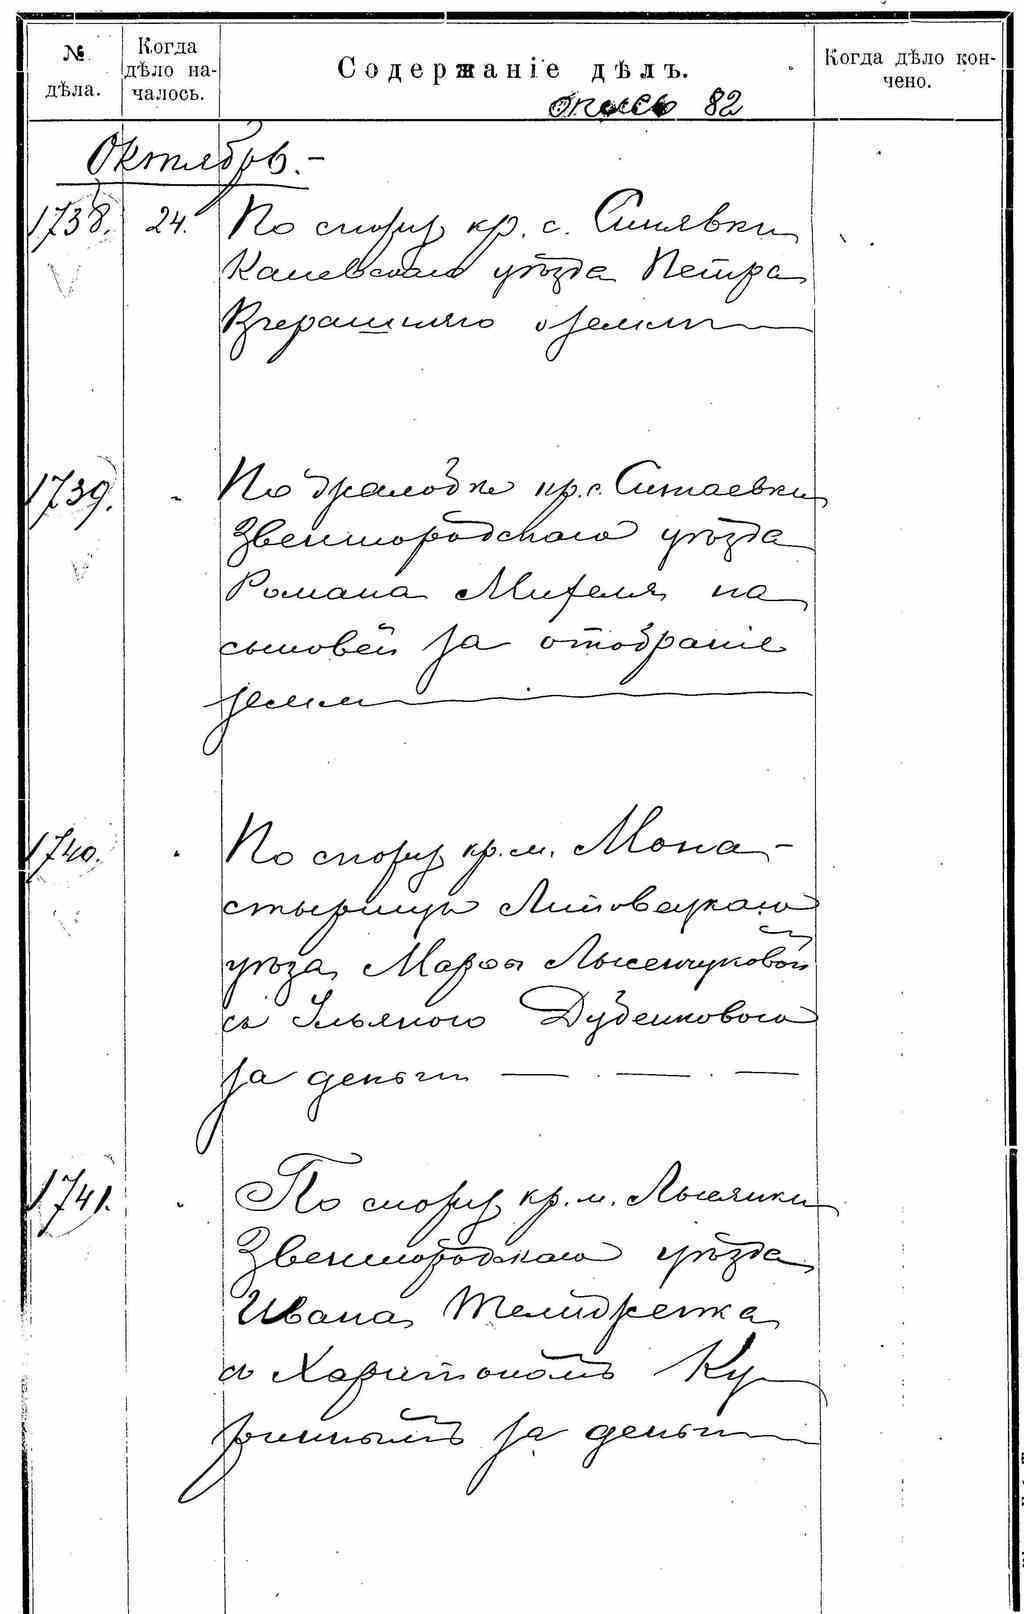 № дѣла.
Когда дѣло на-
чалось.
Содержаніе дѣлъ.
Когда дѣло кон-
чено.
опись 82
Октябрь.-
1738. 24. По спору кр. с. Синявки
Каневскаго уѣзда Петра
Вчерашняго о землѣ
1739. " По жалобѣ кр. с.
Звенигородскаго уѣзда
Романа на
сыновей за отобраніе
земли
1740. " По спору кр. м. Мона-
стырища Липовецкаго
уѣзда Марфы Лысенчуковой
съ Ульяною
за деньги
1741. " По спору кр. м. Лысянки
Звенигородскаго уѣзда
Ивана
съ Харитономъ Ку-
за деньги